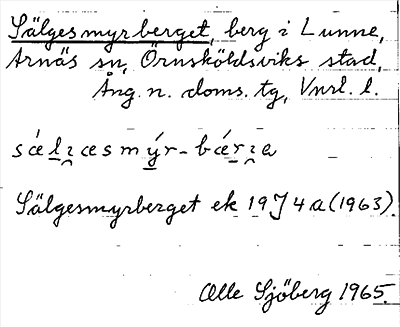 Sälgesmyrberget, berg i Lunne,
Arnäs sn, Örnsköldsviks stad,
Ång. n. doms. tg, Vnrl. l.
sǽlɀæsmýr-bǽrɀa
Sälgesmyrberget ek 19J4a(1963).
Olle Sjöberg 1965.